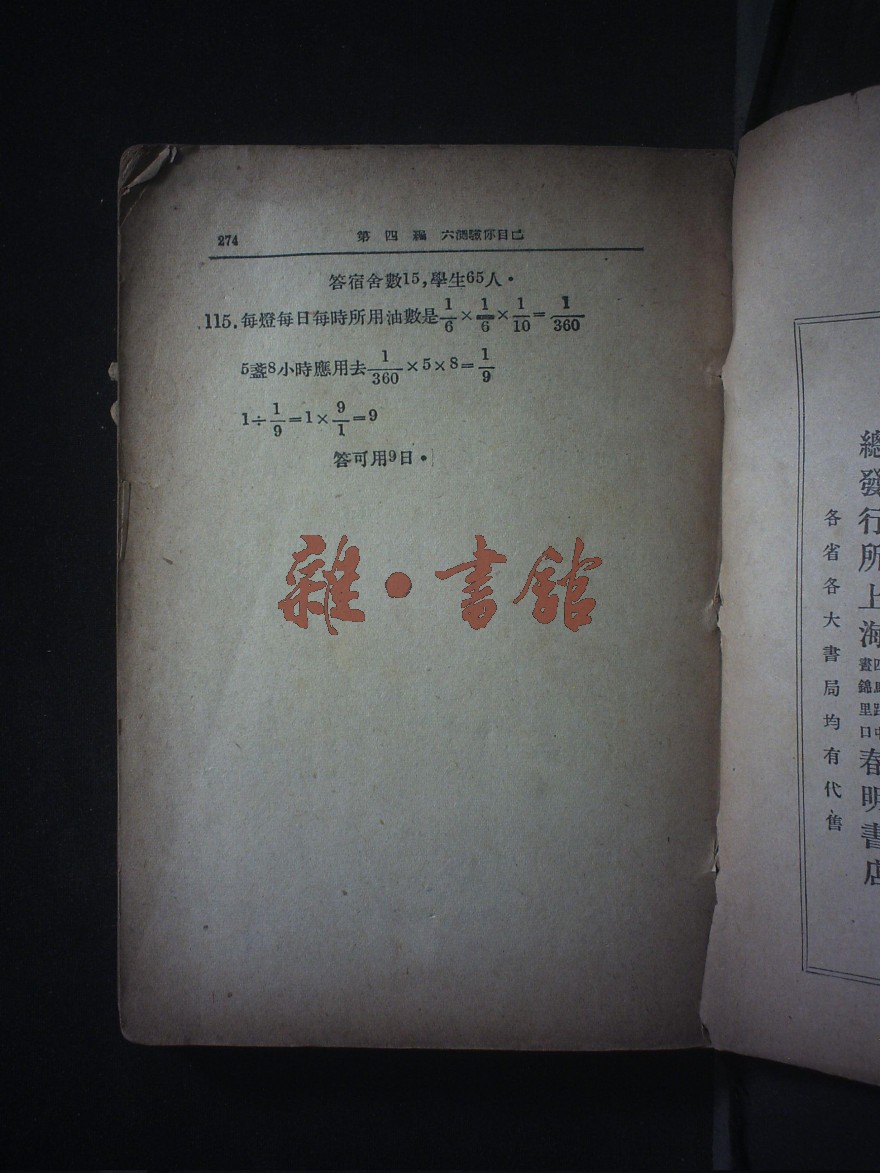 274 第四編 六測驗你自己
答宿舍數15,學生65人·
115. 每燈每日每時所用油數是1/6×1/6×1/10=1/360
5盞8小時應用去1/360×5×8=1/9
1÷1/9=1×9/1=9
答可用9日·
雜·書館
總發行所上海
春明書店
各省各大書局均有代售